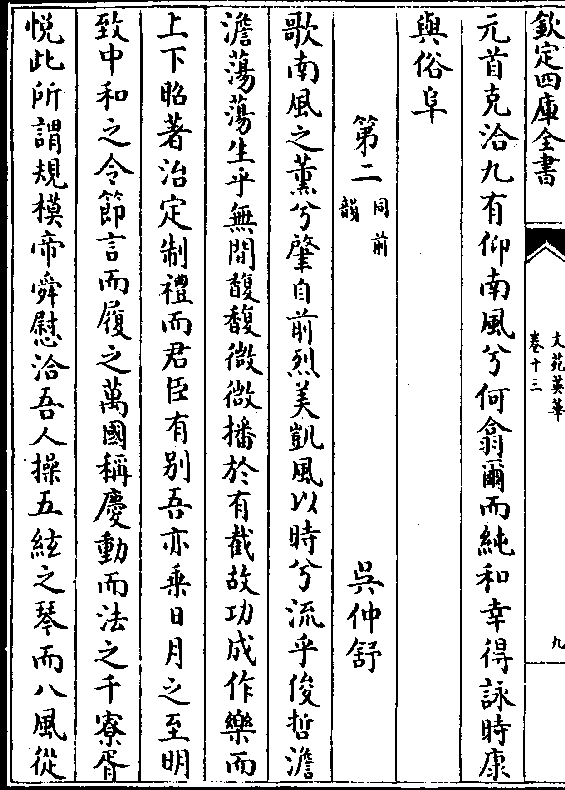 欽定四庫全書
文苑英華
卷十三
九
元首克洽九有仰南風兮何翕爾而純和幸得詠時康
與俗阜
第二同前韻 吳仲舒
歌南風之薰兮肇自前烈美凱風以時兮流乎俊哲澹
澹蕩蕩生乎無間馥馥微微播於有截故功成作樂而
上下昭著治定制禮而君臣有别吾亦乗日月之至明
致中和之令節言而履之萬國稱慶動而法之千寮胥
悦此所謂規模帝舜慰洽吾人操五絃之琴而八風從